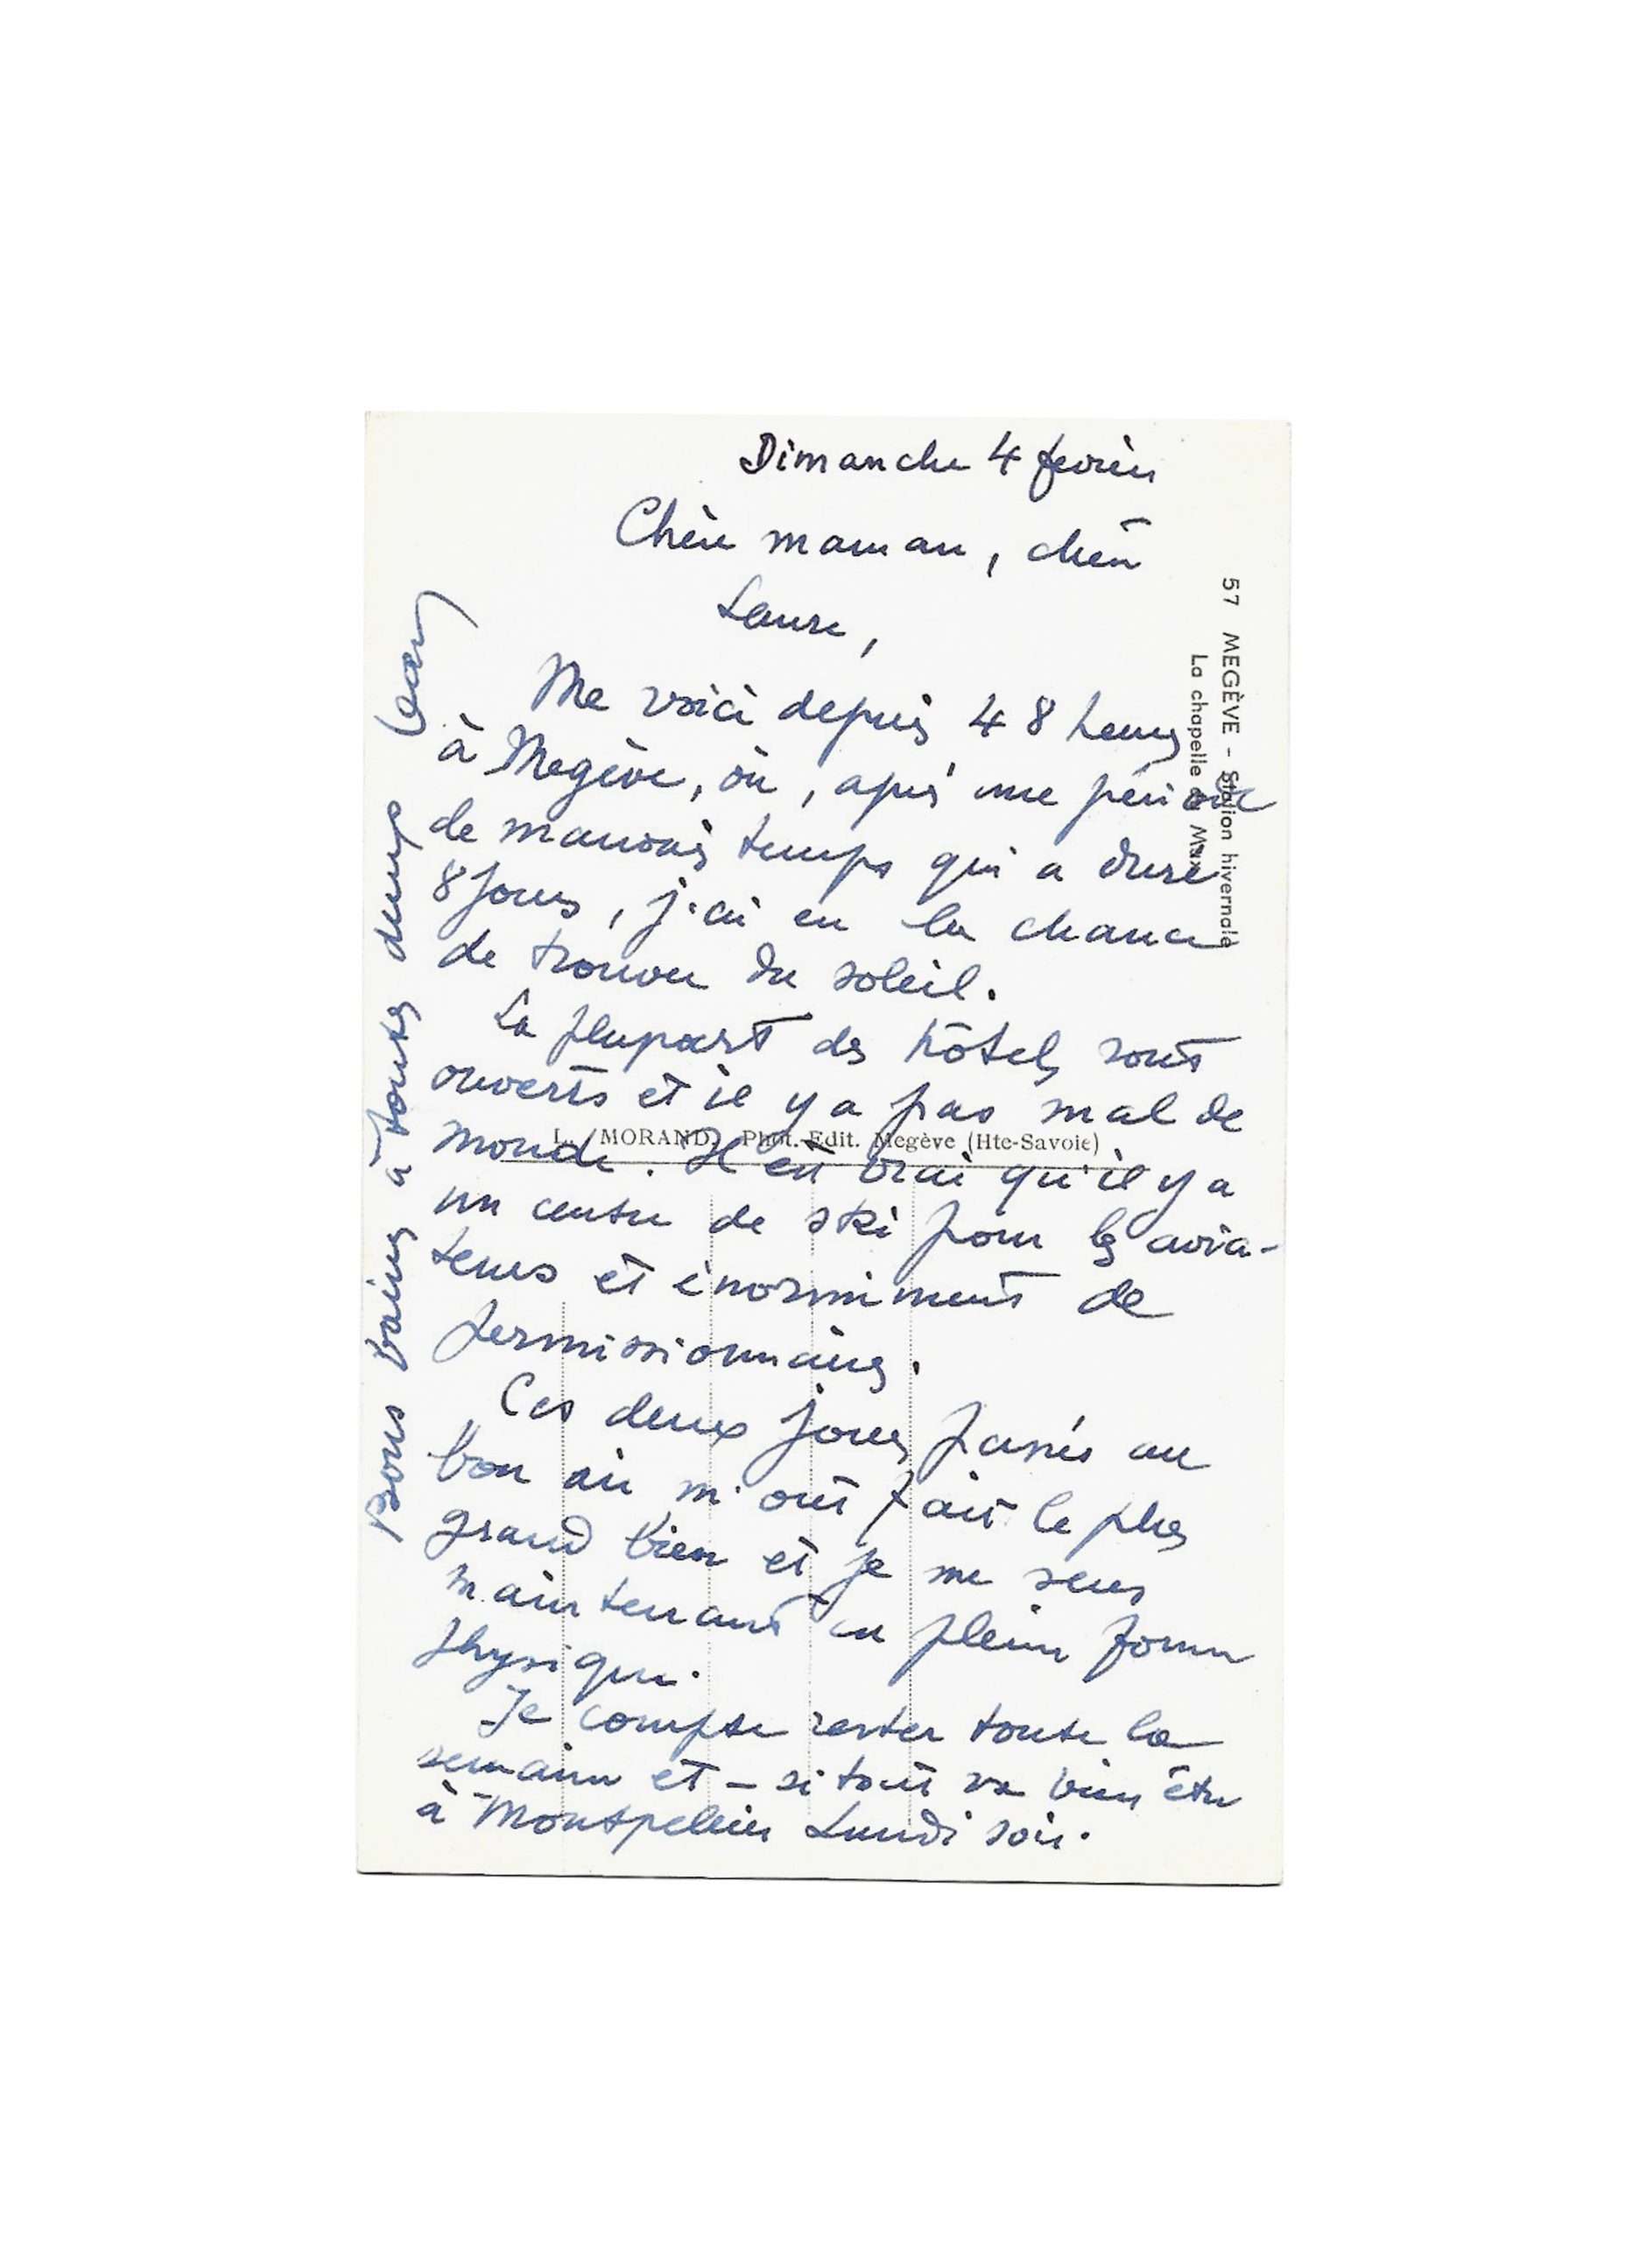 Dimanche 4 février
Chère maman, chère
Laure,
Me voici depuis 48 heures
à Megève, où, après une période
de mauvais temps qui a duré
8 jours, j'ai eu la chance
de trouver du soleil.
La plupart des hôtels sont
ouverts et il y a pas mal de
monde. Il est vrai qu'il y a
un centre de ski pour les avia-
teurs et énormément de
permissionnaires.
Ces deux jours passés au
bon air m'ont fait le plus
grand bien et je me sens
maintenant en pleine forme
physique.
Je compte rester toute la
semaine et – si tout va bien être
à Montpellier Lundi soir.
Bons baisers à toutes deux
Jean
57 MEGÈVE - Station hivernale
La chapelle
L. MORAND, Phot.-Edit. Megève (Hte-Savoie)